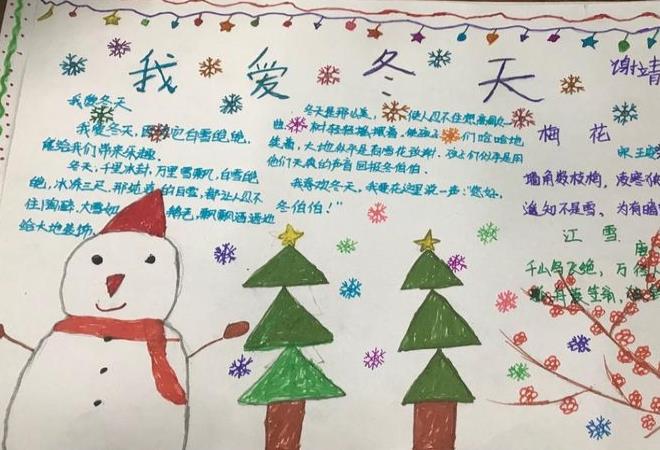 我爱冬天
谢
我爱冬天
我爱冬天，因为它白雪皑皑，
能给我们带来乐趣。
冬天，千里冰封，万里雪飘，白雪皑
皑，冰冻三尺，那纯洁的白雪，都让人忍不
住陶醉，大雪如 鹅毛，飘飘洒洒地
给大地装饰
冬天是那么美，使人忍不住想高歌一
曲，
们哈哈地
笑着，大地似乎是和雪花
他们天真的声音回报冬伯伯。
我喜欢冬天，我要在这里说一声：“您好，
冬伯伯！”
梅花
宋 王安
墙角数枝梅，凌寒独
遥知不是雪，为有暗
江雪
唐
千山鸟飞绝，万径
舟蓑笠翁，